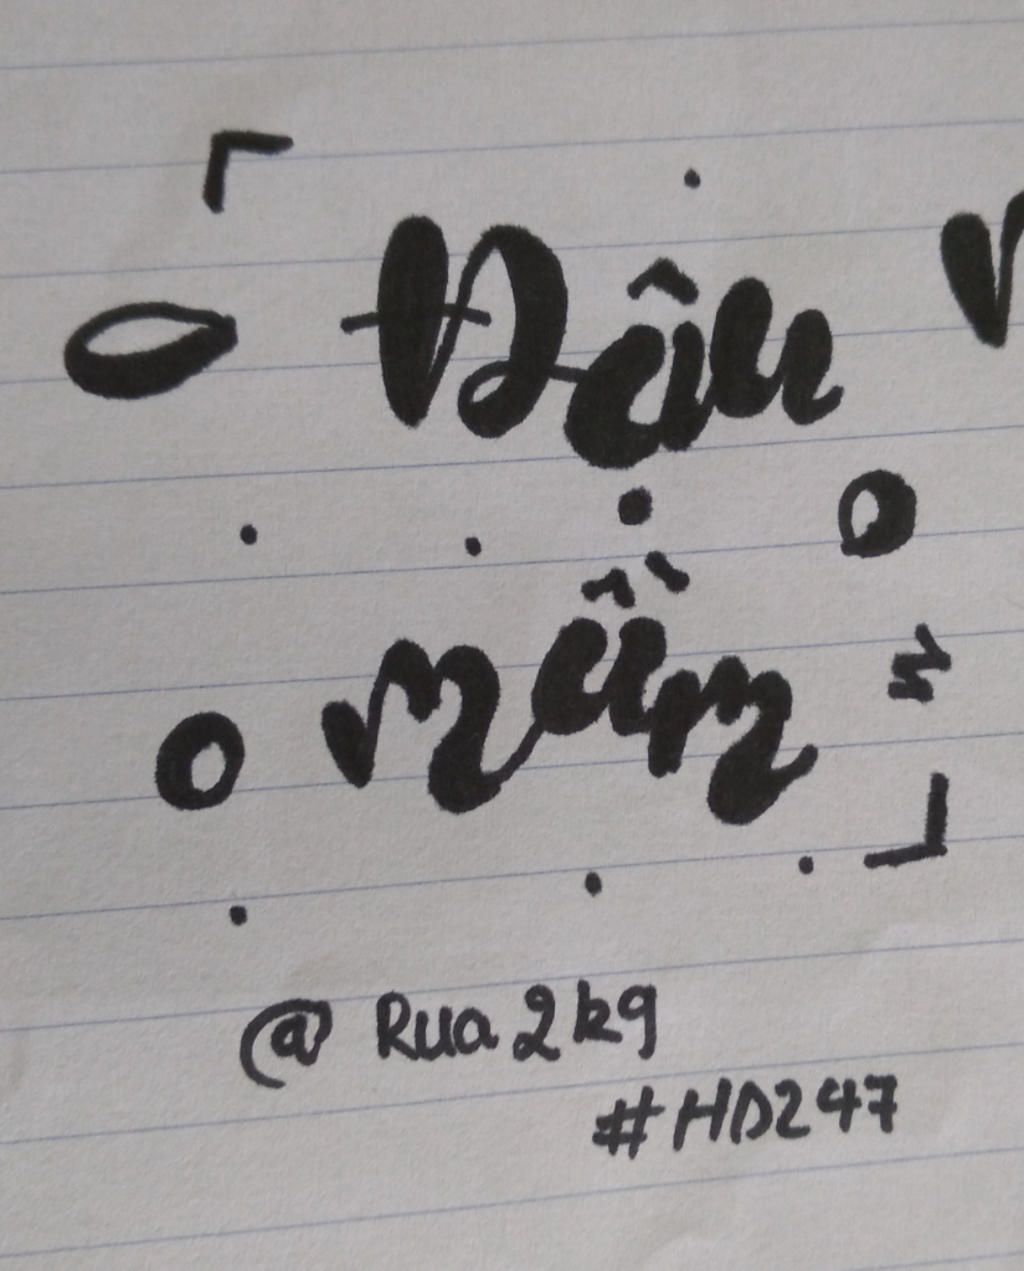 Đậu
mầm
@Rua2kg
#HD247